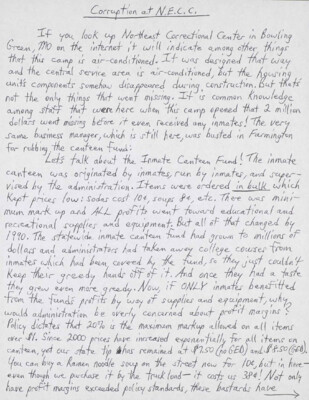 Corruption at N.E.C.C.
If you look up Northeast Correctional Center in Bowling
Green, MO on the internet it will indicate among other things
that this camp is air-conditioned. It was designed that way
and the central service area is air-conditioned, but the housing
units components somehow disappeared during construction. But that's
not the only things that went missing. It is common knowledge
among staff that were here when this camp opened that 2 million
dollars went missing before it even received any inmates! The very
same business manager, which is still here, was busted in Farmington
for robbing the canteen fund:
Let's talk about the Inmate Canteen Fund! The inmate
canteen was originated by inmates, run by inmates, and super-
vised by the administration. Items were ordered in bulk which
kept prices low: sodas cost 10¢, soups 8¢, etc. There was minir-
mum mark up and ALL profits went toward educational and
recreational supplies and equipment. But all of that changed by
1990. The statewide inmate canteen fund had grown to millions of
dollars and administrators had taken away college courses from
inmates which had been covered by the fund, so they just couldn't
keep their greedy hands off of it. And once they had a taste
they grew even more greedy. Now, if ONLY inmates benefitted
from the funds profits by way of supplies and equipment, why
would administration be overly concerned about profit margins?
Policy dictates that 20% is the maximum markup allowed on all items
over $1. Since 2000 prices have increased exponentially for all items on
canteen, yet our state tip has remained at $7.50 (no GED) and $8.50 (GED).
You can buy a Ramen noodle soup on the street now for 10¢, but in here -
even though we purchase it by the truck load - it costs us 38¢! Not only
have profit margins exceeded policy standards, these bastards have